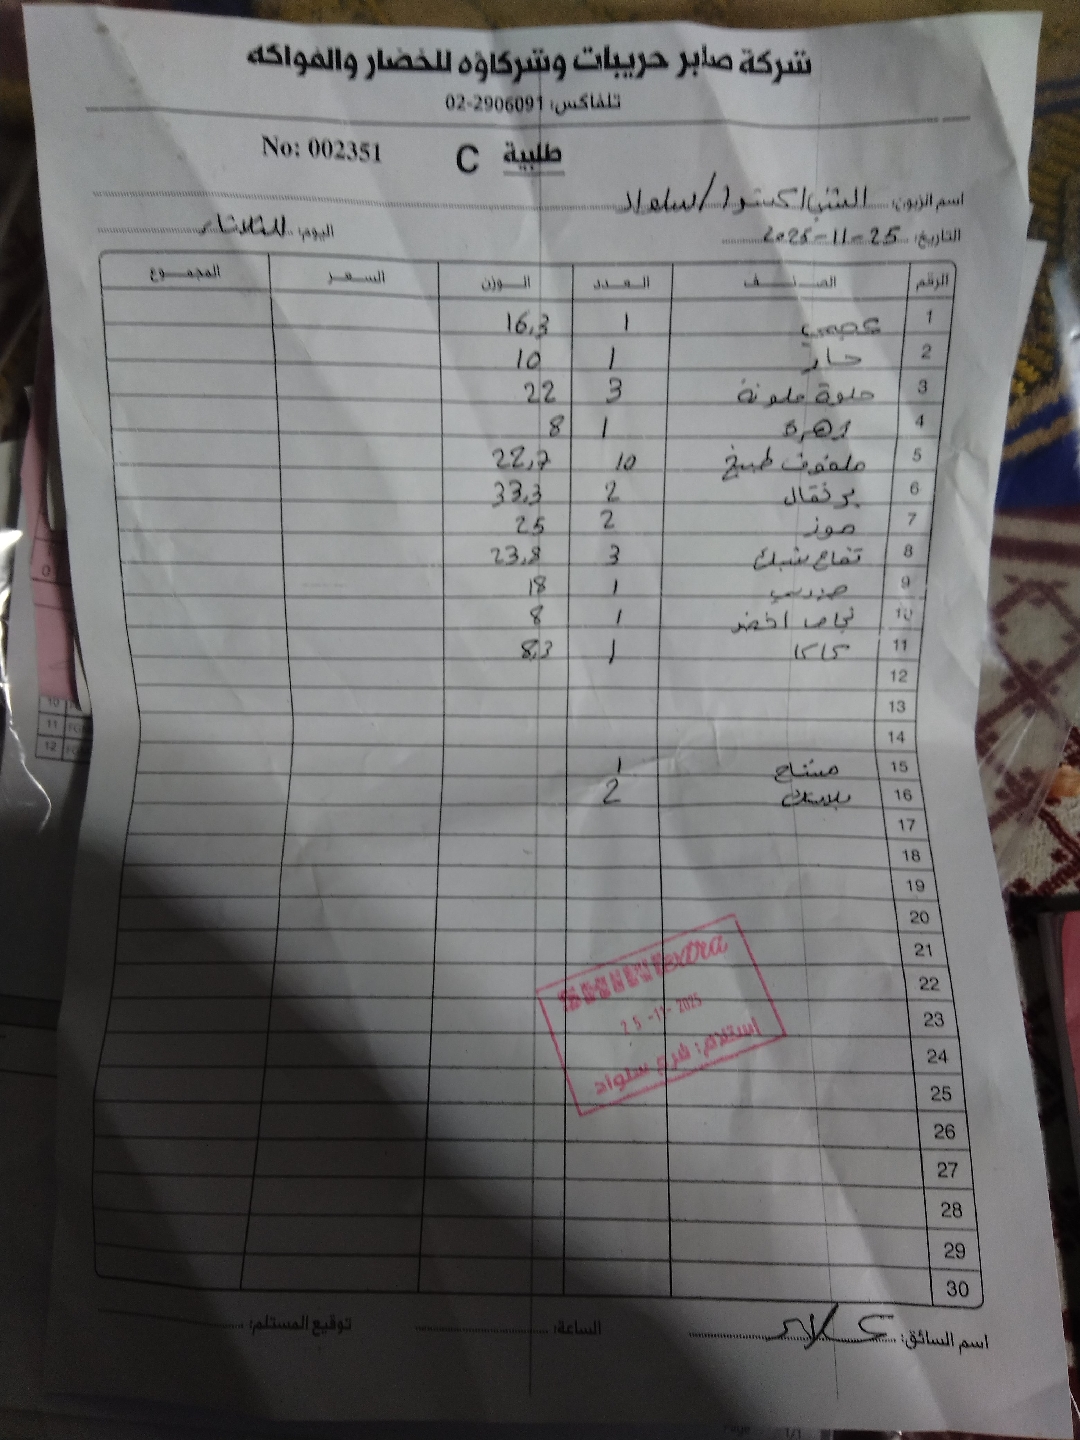 شركة صابر حريبات وشركاؤه للخضار والفواكه
تلفاكس: 02-2906091
No: 002351 C طلبية
اسم الزبون: الشني اكسترا / سلواد
التاريخ: 25-11-2025 اليوم: الثلاثاء
الرقم الصنف العدد الوزن السعر المجموع
1 عجمي 1 16,3
2 حار 1 10
3 حلوة ملونة 3 22
4 زهرة 1 8
5 ملفوف طبيخ 10 22,7
6 برتقال 2 33,3
7 موز 2 25
8 تفاح 3 23,8
9 1 18
10 نجاص اخضر 1 8
11 كاكا 1 8,3
12
13
14
15 مشتاح 1
16 بلاستك 2
17
18
19
20
21
22
23
24
25
26
27
28
29
30
extra
25-11-2025
استلام: فرع سلواد
اسم السائق: علاء الساعة: توقيع المستلم:
10
11
12